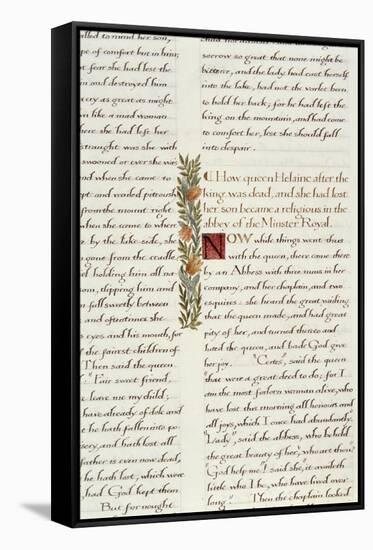 lled to mend her son,
pe of comfort but in him;
t fear she had lost the
m and destroyed him
a cry as great as might
n like a mad woman
here she had left her
straught was she with
swooned or ever she was
and when she came to
ept and wailed piteously
from the mount right
when she came to where
r by the lake-side, she
goten from the cradle,
el holding him all na
om, clipping him and
n full sweetly between
and oftentimes she
s eyes and his mouth, for
the fairest children of
Then said the queen
"Fair sweet friend,
e leave me my child;
have already of dole and
e he hath fallen into po
sery, and hath lost all
father is even now dead,
he hath last, which were
had God kept them.
But for nought
sorrow so great that none might be
bitterer, and the lady had cast herself
into the lake, had not the varlet been
to hold her back; for he had left the
king on the mountain, and had come
to comfort her, lest she should fall
into despair.
¶ How queen Helaine after the
king was dead, and she had lost
her son became a religious in the
abbey of the Minster Royal.
NOW while things went thus
with the queen, there came there
by an Abbess with three nuns in her
company, and her chaplain, and two
esquires: she heard the great wailing
that the queen made, and had great
pity of her, and turned thereto and
hailed the queen, and bade God give
her joy. "Certes", said the queen
"that were a great deed to do; for I
am the most forlorn woman alive, who
have lost this morning all honours and
all joys, which I once had abundantly."
"Lady", said the abbess, who beheld
the great beauty of her, who are then?"
"God help me! I said she, it availeth
little who I be, who have lived over
long." Then the chaplain looked